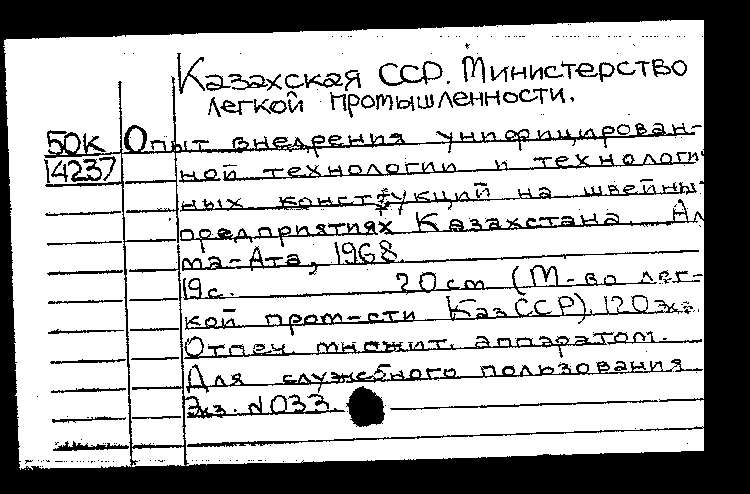 Казахская ССР. Министерство
легкой промышленности.
50К Опыт внедрения унифицирован-
14237 ной технологии и технологи
ных конструкций на швейны
предприятиях Казахстана. Ал
ма-Ата, 1968.
19с. 20см (М-во лег-
кой пром-сти КазССР). 120экз.
Отпеч. множит. аппаратом.
Для служебного пользования
Экз. №033.